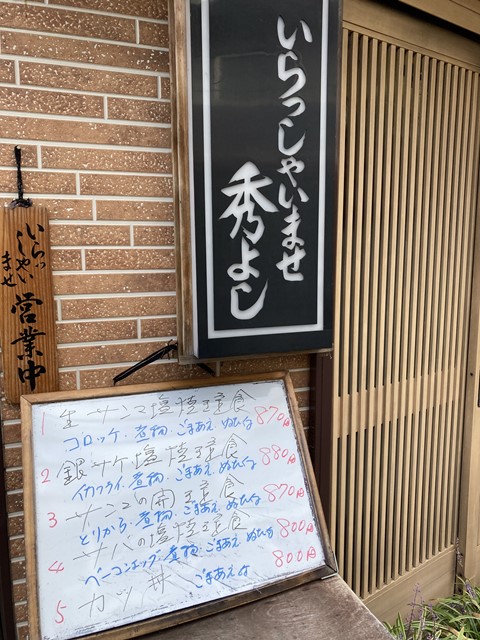 いらっしゃいませ
秀よし
いらっ
しゃい
ませ
営業中
1 生サンマ塩焼定食 870円
コロッケ.煮物.ごまあえ.
2 銀サケ塩焼定食 880円
イカフライ.煮物.ごまあえ.
3 サンマの開定食 870円
とりから.煮物.ごまあえ.
4 サバの塩焼定食 800円
ベーコンエッグ.煮物.ごまあえ.
5 カツ丼 800円
ごまあえ